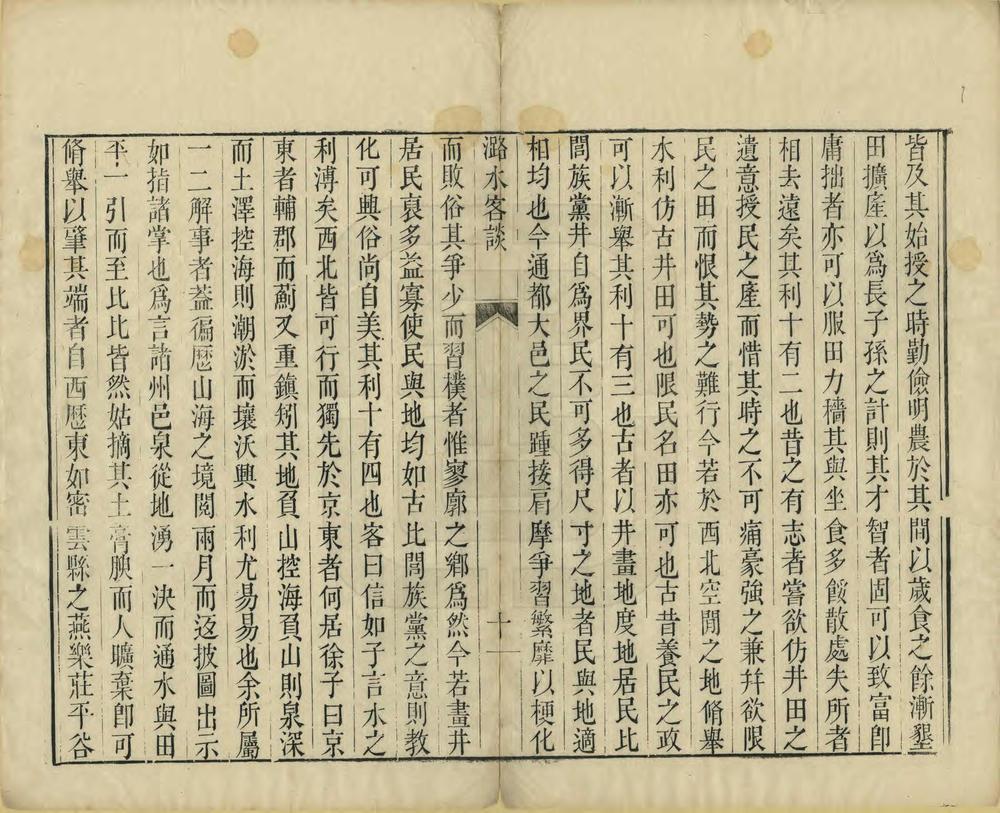 皆及其始授之時勤儉明農於其間以歲食之餘漸墾
田擴產以爲長子孫之計則其才智者固可以致富卽
庸拙者亦可以服田力穡其與坐食多餒散處失所者
相去遠矣其利十有二也昔之有志者嘗欲仿井田之
遺意授民之產而惜其時之不可痛豪強之兼幷欲限
民之田而恨其勢之難行今若於西北空閒之地脩舉
水利仿古井田可也限民名田亦可也古昔養民之政
可以漸舉其利十有三也古者以井畫地度地居民比
閭族黨井自爲界民不可多得尺寸之地者民與地適
相均也今通都大邑之民踵接肩摩爭習繁靡以梗化
潞水客談
十一
而敗俗其爭少而習樸者惟寥廓之鄉爲然今若畫井
居民裒多益寡使民與地均如古比閭族黨之意則教
化可興俗尚自美其利十有四也客曰信如子言水之
利溥矣西北皆可行而獨先於京東者何居徐子曰京
東者輔郡而薊又重鎮矧其地負山控海負山則泉深
而土澤控海則潮淤而壤沃興水利尤易易也余所屬
一二解事者葢徧歷山海之境閱兩月而返披圖出示
如指諸掌也爲言諸州邑泉從地湧一決而通水與田
平一引而至比比皆然姑摘其土膏腴而人曠棄卽可
脩舉以肇其端者自西歷東如密雲縣之燕樂莊平谷